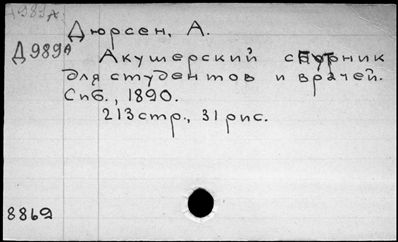 Дюрсен, А.
Д989А
Акушерский спутник
для студентов и врачей.
Спб., 1890.
213 стр., 31 рис.
8869